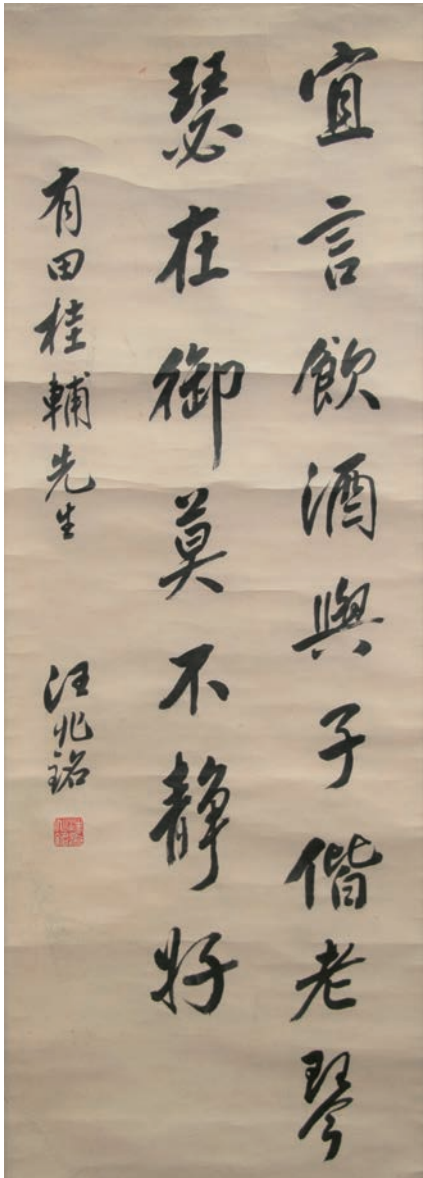 宜言飲酒與子偕老琴
瑟在御莫不靜好
有田桂輔先生
汪兆銘